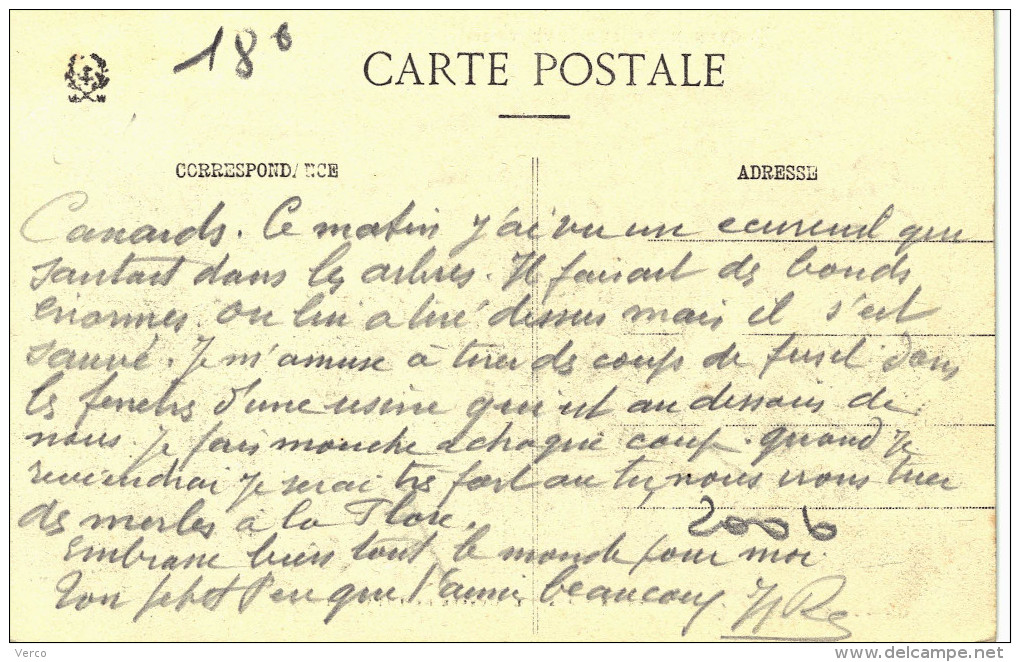 18 6
CARTE POSTALE
CORRESPONDANCE
ADRESSE
Canards. Ce matin j'ai vu un ecureuil qui
sautait dans les arbres. Il faisait des bonds
enormes. On lui a tiré dessus mais il s'est
sauvé. Je m'amuse à tirer des coups de fusil dans
les fenetres d'une usine qui est au dessous de
nous. Je fais mouche a chaque coup. Quand je
reviendrai je serai très fort au tir, nous irons tuer
des merles à la
2006
Embrasse bien tout le monde pour moi
Ton petit que t'aime beaucoup.
Verco
www.delcampe.net